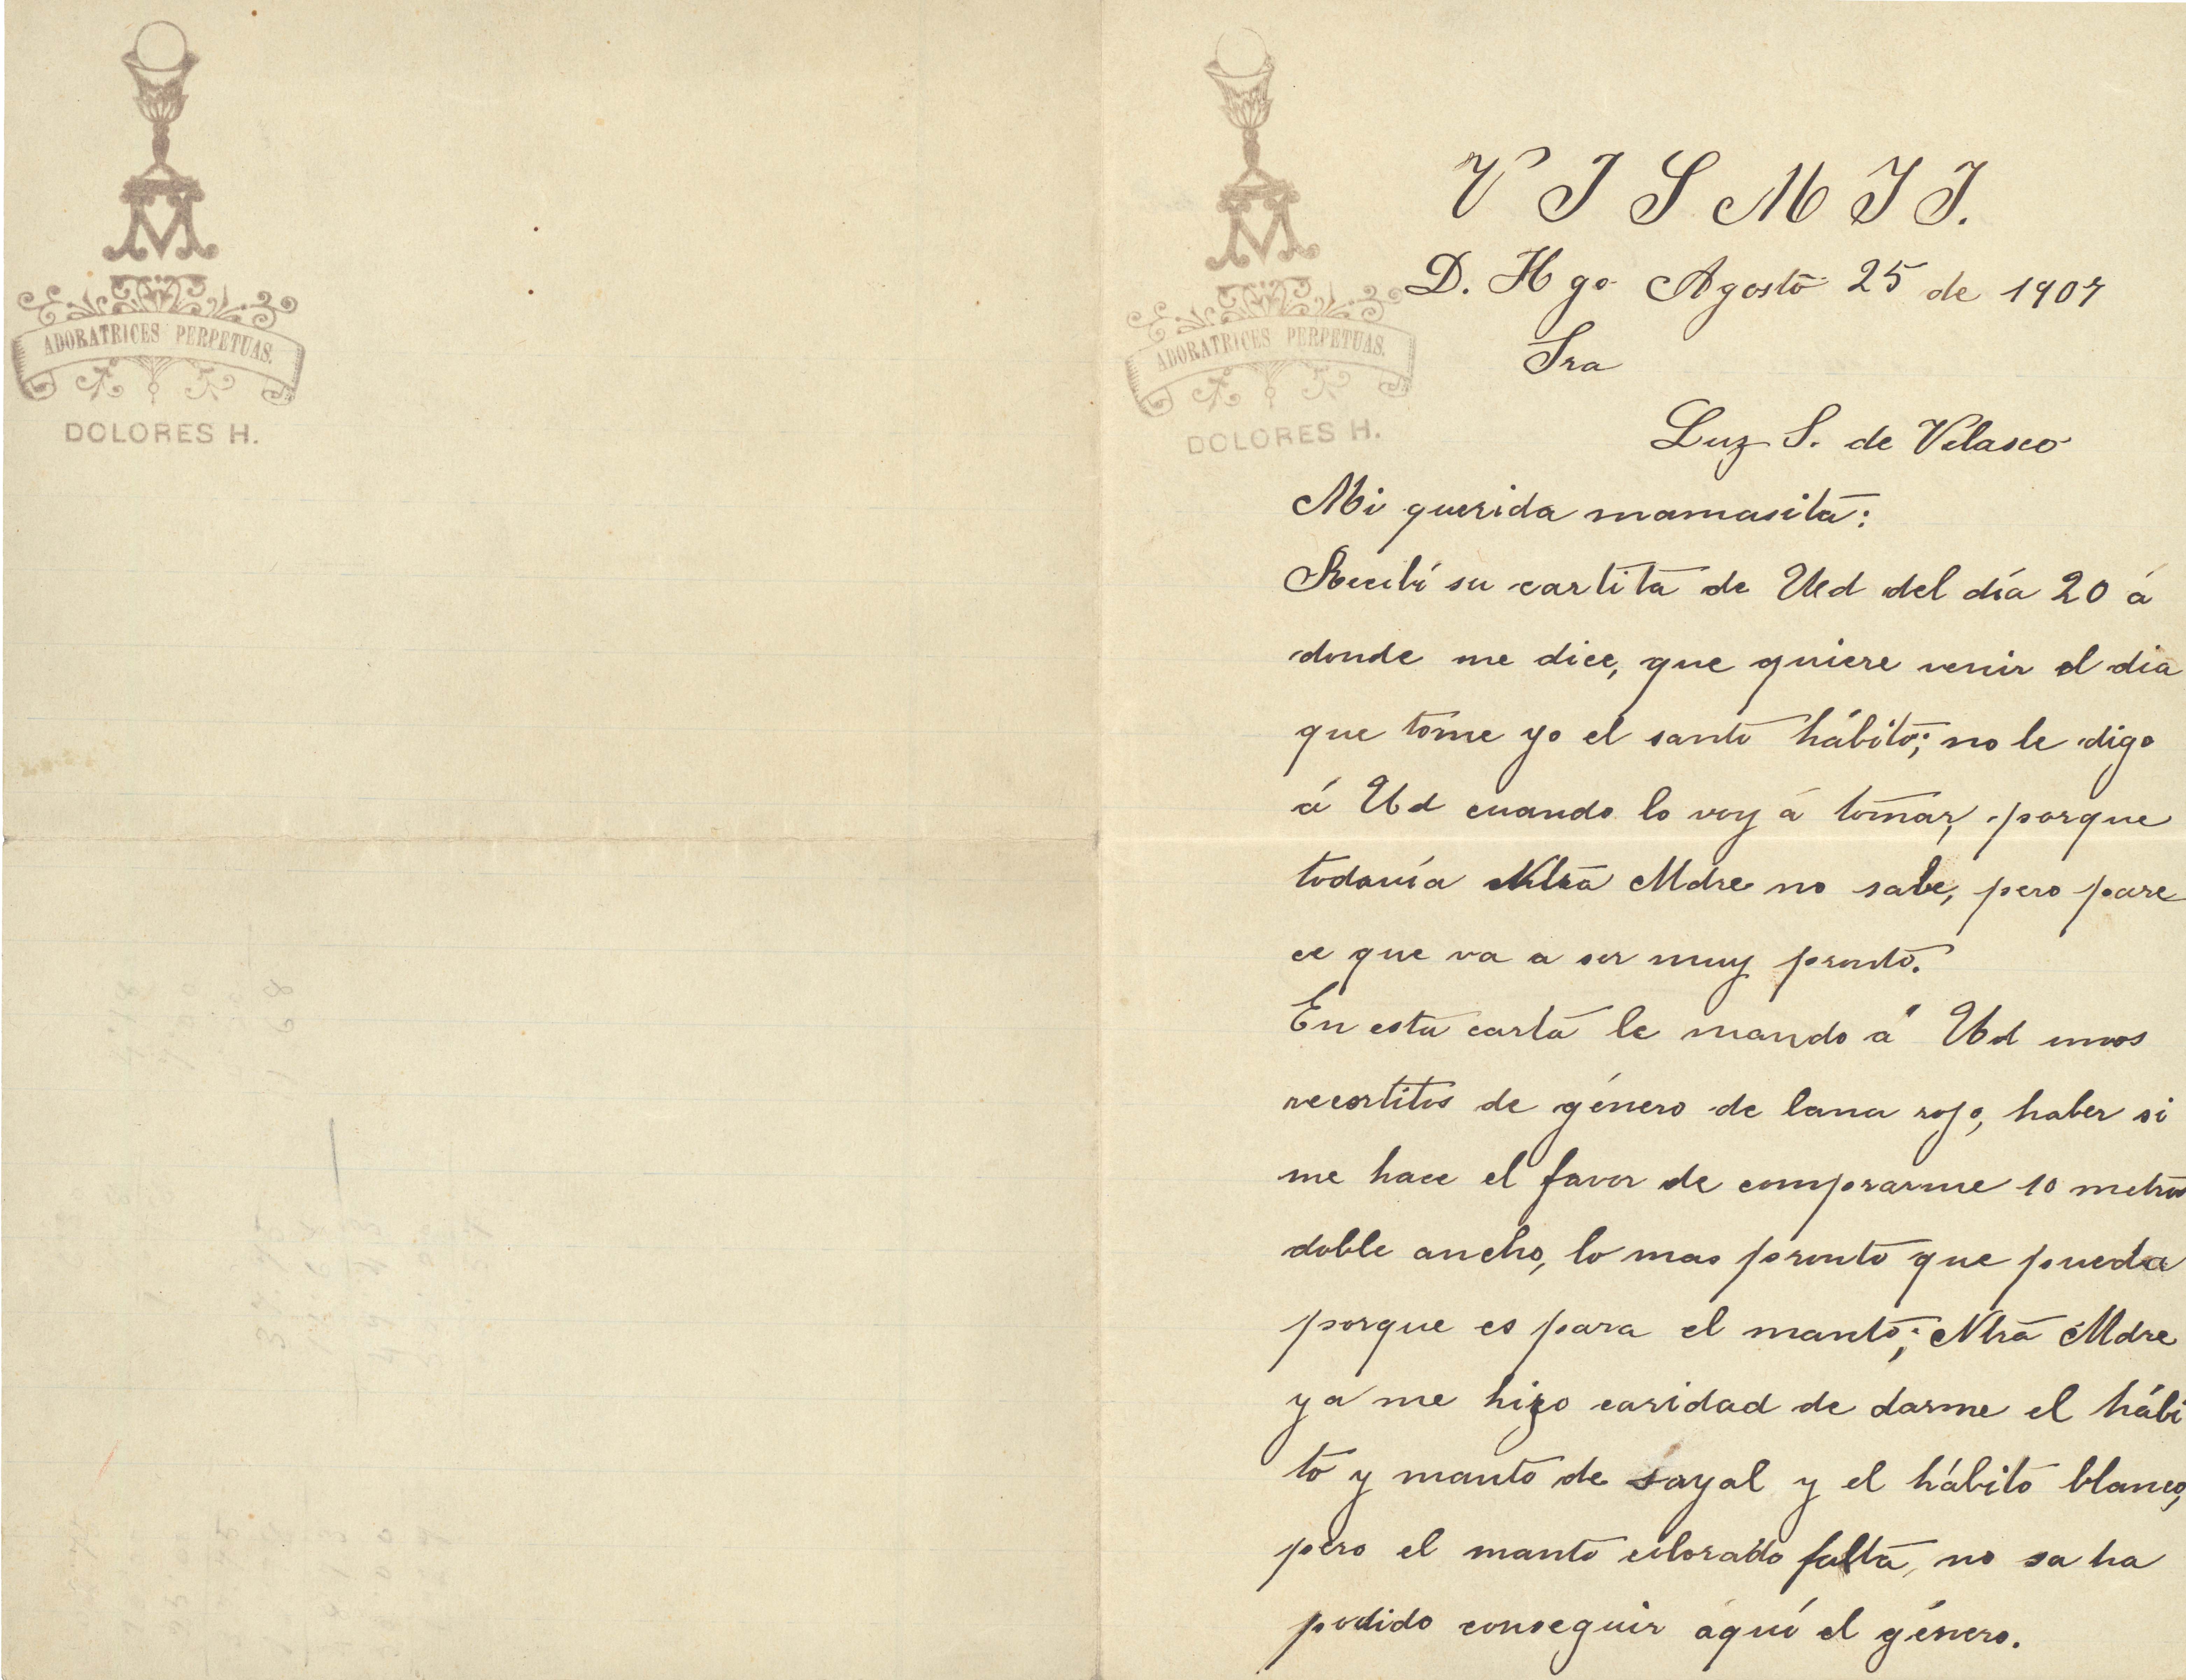 ADORATRICES PERPETUAS.
DOLORES H.
ADORATRICES PERPETUAS.
DOLORES H.
V J S M J J.
D. Hgo Agosto 25 de 1907
Sra
Luz S. de Velasco
Mi querida mamasita:
Recibí su cartita de Ud del día 20 á
donde me dice, que quiere venir el dia
que tome yo el santo hábito; no le digo
á Ud cuando lo voy á tomar, porque
todavía Ntra Mdre no sabe, pero pare
ce que va a ser muy pronto.
En esta carta le mando á Ud unos
recortitos de género de lana rojo, haber si
me hace el favor de comprarme 10 metros
doble ancho, lo mas pronto que pueda
porque es para el manto; Ntra Mdre
ya me hizo caridad de darme el hábi
to y manto de sayal y el hábito blanco,
pero el manto colorado falta, no sa ha
podido conseguir aquí el género.